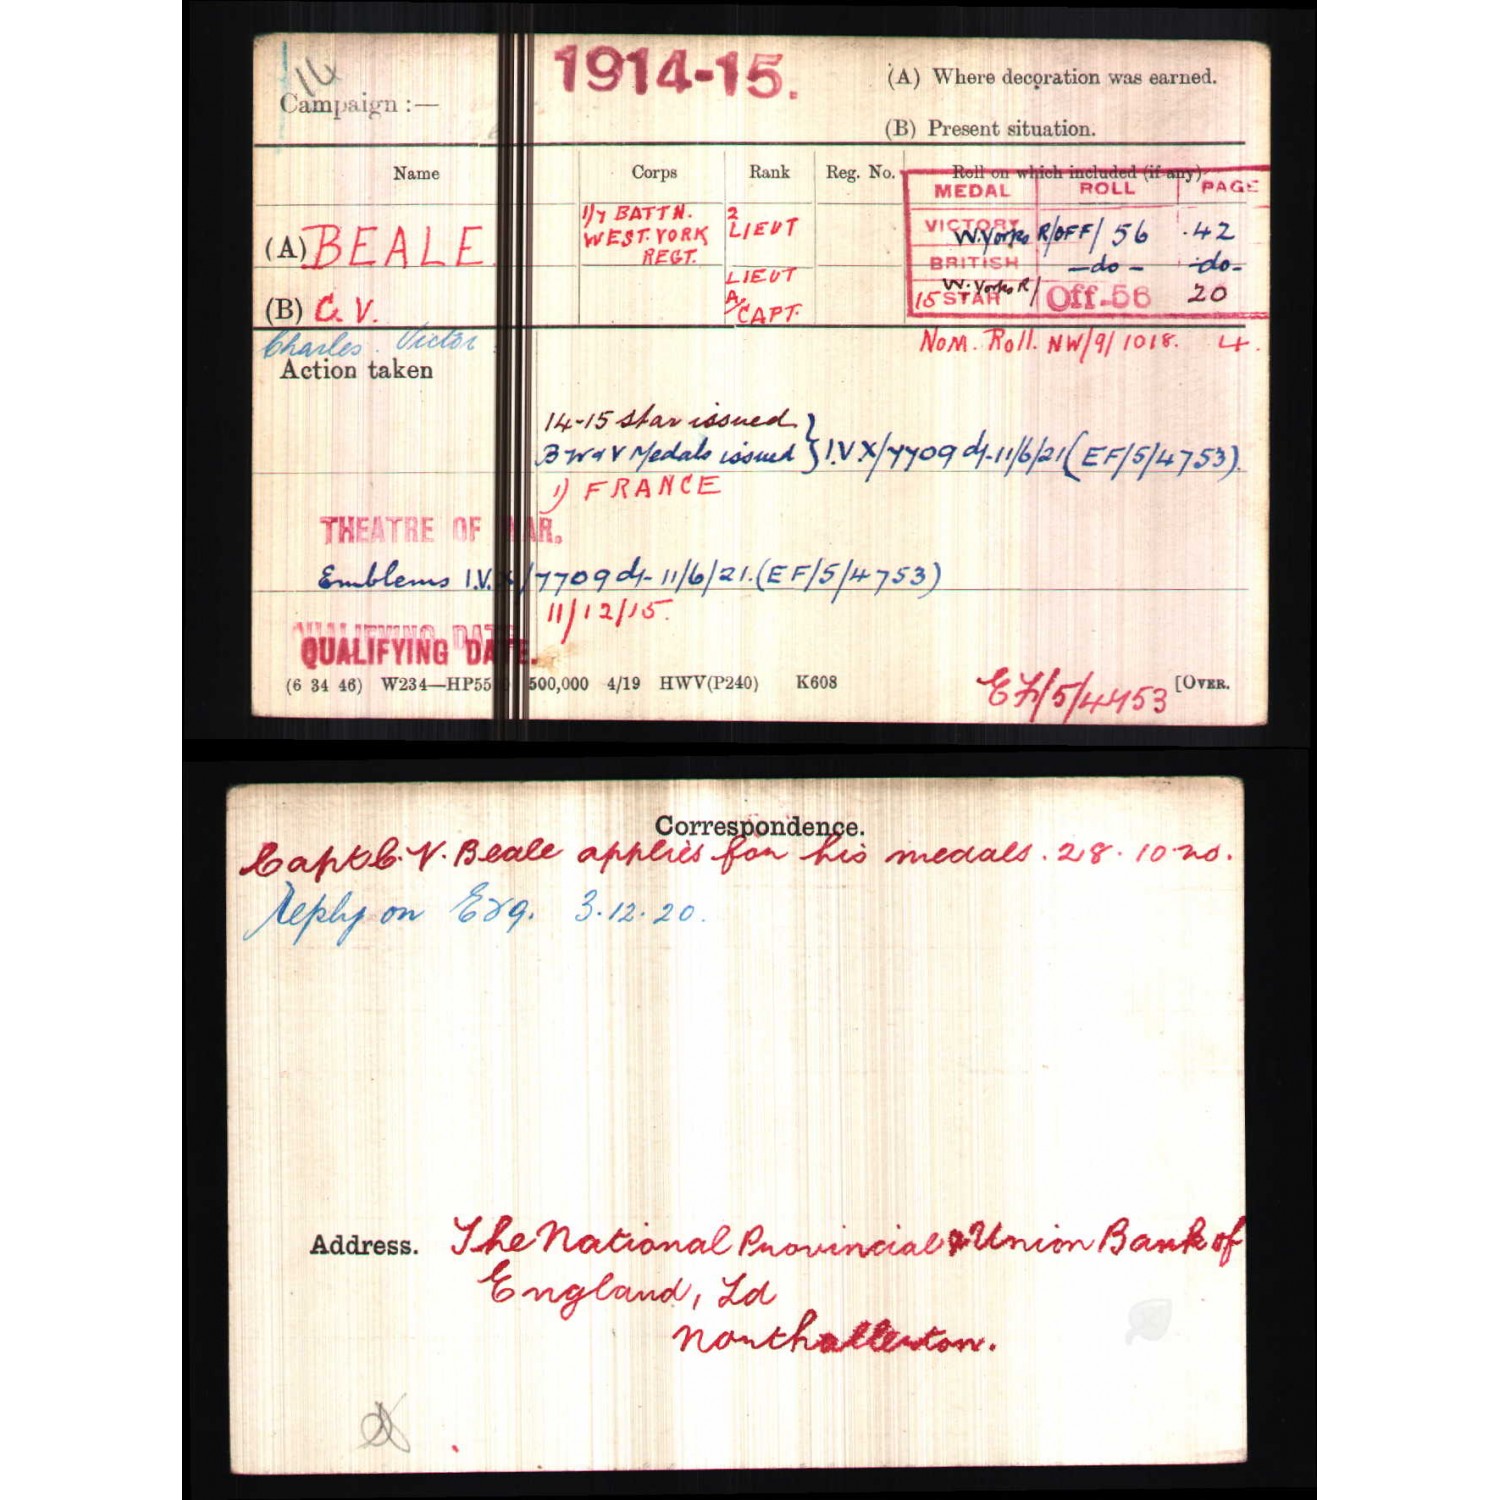 14
1914-15.
(A) Where decoration was earned.
Campaign :—
(B) Present situation.
Name Corps Rank Reg. No. Roll on which included (if any)
MEDAL ROLL PAGE
(A) BEALE 1/7 BATTN. WEST. YORK REGT. 2 LIEUT VICTORY W. Yorks R/OFF/56 42
LIEUT BRITISH —do— -do-
(B) C. V. A/CAPT. 15 STAR W. Yorks R/ Off-56 20
Charles Victor Nom. Roll. NW/9/1018. 4.
Action taken
14-15 Star issued
B W & V Medals issued } I.V X/7709 d/- 11/6/21 (EF/5/4753).
1) FRANCE
THEATRE OF WAR.
Emblems I.V. X/7709 d/- 11/6/21. (EF/5/4753)
11/12/15.
QUALIFYING DATE.
(6 34 46) W234—HP55 500,000 4/19 HWV(P240) K608
EF/5/4753 [OVER.
Correspondence.
Capt C. V. Beale applies for his medals. 28. 10 20.
Reply on 3.12.20.
Address. The National Provincial & Union Bank of
England, Ld
Northallerton.